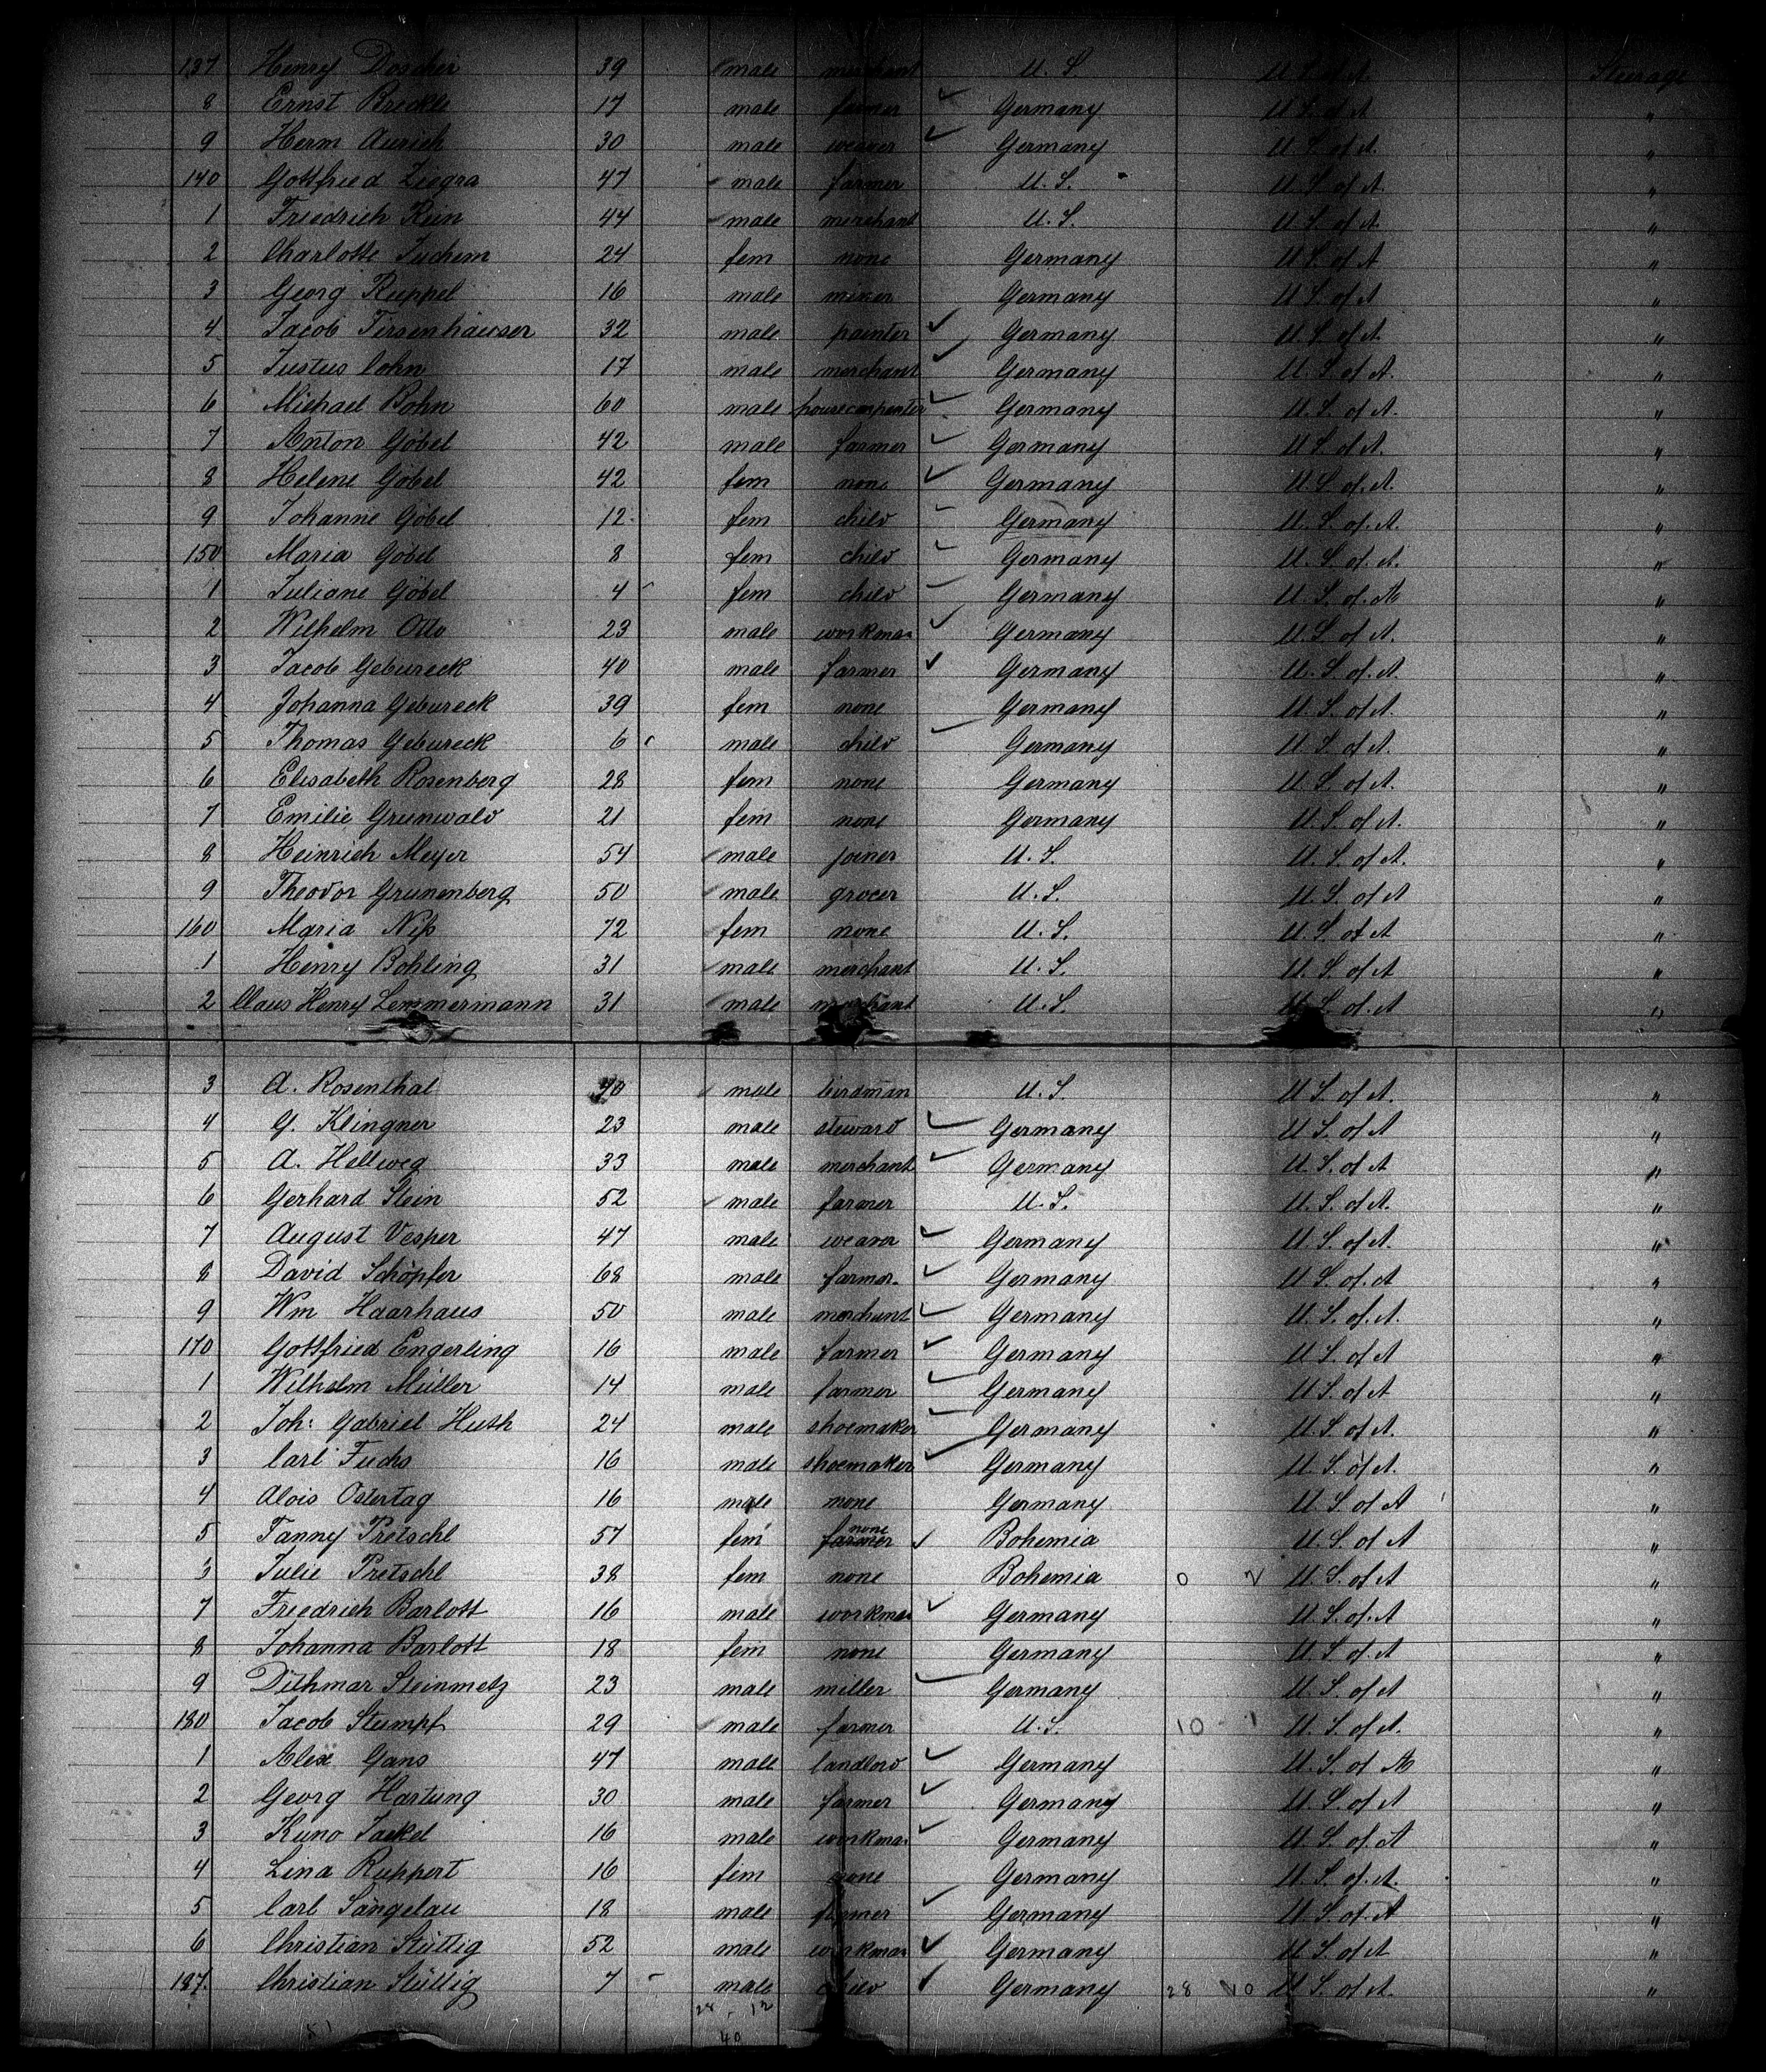 137 Henry Doscher 39 male merchant U. S. U. S. of A. Steerage
8 Ernst Breckle 17 male farmer Germany U. S. of A "
9 Herm Aurich 30 male weaver Germany U. S. of A. "
140 Gottfried Ziegra 47 male farmer U. S. U. S. of A. "
1 Friedrich Rein 44 male merchant U. S. U. S. of A. "
2 Charlotte Juchem 24 fem none Germany U. S. of A "
3 Georg Ruppel 16 male miner Germany U. S. of A "
4 Jacob Tirsenhäuser 32 male painter Germany U. S. of A. "
5 Justus Cohn 17 male merchant Germany U. S. of A. "
6 Michael Bohn 60 male housecarpenter Germany U. S. of A. "
7 Anton Göbel 42 male farmer Germany U. S. of A. "
8 Helene Göbel 42 fem none Germany U. S. of. A. "
9 Johanne Göbel 12 fem child Germany U. S. of. A. "
150 Maria Göbel 8 fem child Germany U. S. of. A. "
1 Juliane Göbel 4 fem child Germany U. S. of. A "
2 Wilhelm Otto 23 male workman Germany U. S. of A. "
3 Jacob Gebureck 40 male farmer Germany U. S. of. A. "
4 Johanna Gebureck 39 fem none Germany U. S. of A. "
5 Thomas Gebureck 6 male child Germany U. S. of A. "
6 Elisabeth Rosenberg 28 fem none Germany U. S. of A. "
7 Emilie Grunwald 21 fem none Germany U. S. of A. "
8 Heinrich Meyer 54 male joiner U. S. U. S. of A. "
9 Theodor Grunenberg 50 male grocer U. S. U. S. of A "
160 Maria Niß 72 fem none U. S. U. S. of A "
1 Henry Bohling 31 male merchant U. S. U. S. of A "
2 Claus Henry Lemmermann 31 male merchant U. S. U. S. of A "
3 A. Rosenthal 40 male birdman U. S. U. S. of A. "
4 G. Klingner 23 male steward Germany U. S. of A "
5 A. Hellweg 33 male merchant Germany U. S. of A "
6 Gerhard Stein 52 male farmer U. S. U. S. of A. "
7 August Vesper 47 male weaver Germany U. S. of A. "
8 David Schöpfer 68 male farmer Germany U. S. of. A "
9 Wm Haarhaus 50 male merchant Germany U. S. of. A. "
170 Gottfried Engerling 16 male farmer Germany U. S. of A "
1 Wilhelm Müller 14 male farmer Germany U. S. of A "
2 Joh: Gabriel Huth 24 male shoemaker Germany U. S. of A. "
3 Carl Fuchs 16 male shoemaker Germany U. S. of A. "
4 Alois Ostertag 16 male none Germany U. S. of A "
5 Fanny Pretschl 57 fem farmer none Bohemia U. S. of A "
3 Julie Pretschl 38 fem none Bohemia 0 2 U. S. of A "
7 Friedrich Barlott 16 male workman Germany U. S. of. A "
8 Johanna Barlott 18 fem none Germany U. S. of. A "
9 Dithmar Steinmetz 23 male miller Germany U. S. of A "
180 Jacob Stumpf 29 male farmer U. S. 10 - 1 U. S. of A. "
1 Alex Gans 47 male landlord Germany U. S. of A "
2 Georg Hartung 30 male farmer Germany U. S. of A "
3 Kuno Jackel 16 male workman Germany U. S. of. A "
4 Lina Ruppert 16 fem none Germany U. S. of. A. "
5 Carl Sängelau 18 male farmer Germany U. S. of. A "
6 Christian Stüttig 52 male workman Germany U. S. of A "
187. Christian Stüttig 7 male child Germany 28 10 U. S. of A. "
28 - 12
40